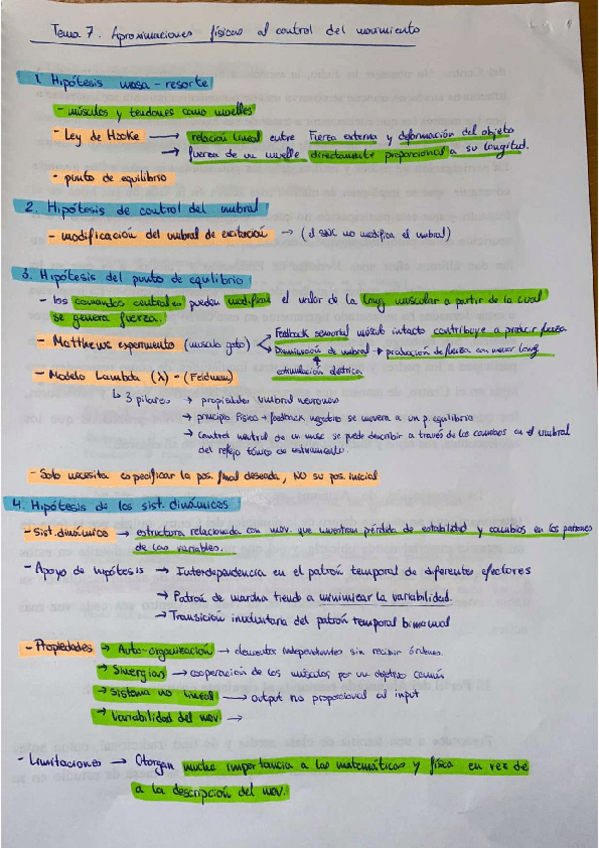 Tema 7. Aproximaciones físicas al control del movimiento
1. Hipótesis masa - resorte
- músculos y tendones como muelles
- Ley de Hooke → relación lineal entre Fuerza externa y deformación del objeto
→ fuerza de un muelle directamente proporcional a su longitud.
- punto de equilibrio
2. Hipótesis de control del umbral
- modificación del umbral de excitación → (el SNC no modifica el umbral)
3. Hipótesis del punto de equilibrio
- los comandos centrales pueden modificar el valor de la long muscular a partir de la cual
se genera fuerza.
- Matthews experimento (músculo gato) < Feedback sensorial músculo intacto contribuye a producir fuerza
Disminución de umbral → producción de fuerza con menor long
estimulación eléctrica
- Modelo Lambda (λ) - (Feldman)
↳ 3 pilares → propiedades umbral neuronas
→ principio físico → feedback negativo se moverá a un p. equilibrio
→ Control neutral de un musc se puede describir a través de los cambios en el umbral
del reflejo tónico de estiramiento.
- Solo necesita especificar la pos. final deseada, NO su pos. inicial
4. Hipótesis de los sist. dinámicos
- Sist. dinámico → estructura relacionada con mov. que muestran pérdida de estabilidad y cambios en los patrones
de las variables.
- Apoyo de hipótesis → Interdependencia en el patrón temporal de diferentes efectores
→ Patrón de marcha tiende a minimizar la variabilidad.
→ Transición involuntaria del patrón temporal bimanual
- Propiedades → Auto-organización → elementos independientes sin recibir órdenes.
→ Sinergias → cooperación de los músculos por un objetivo común
→ Sistema no lineal → output no proporcional al input
→ Variabilidad del mov →
- Limitaciones → Otorgan mucha importancia a las matemáticas y física en vez de
a la descripción del mov.